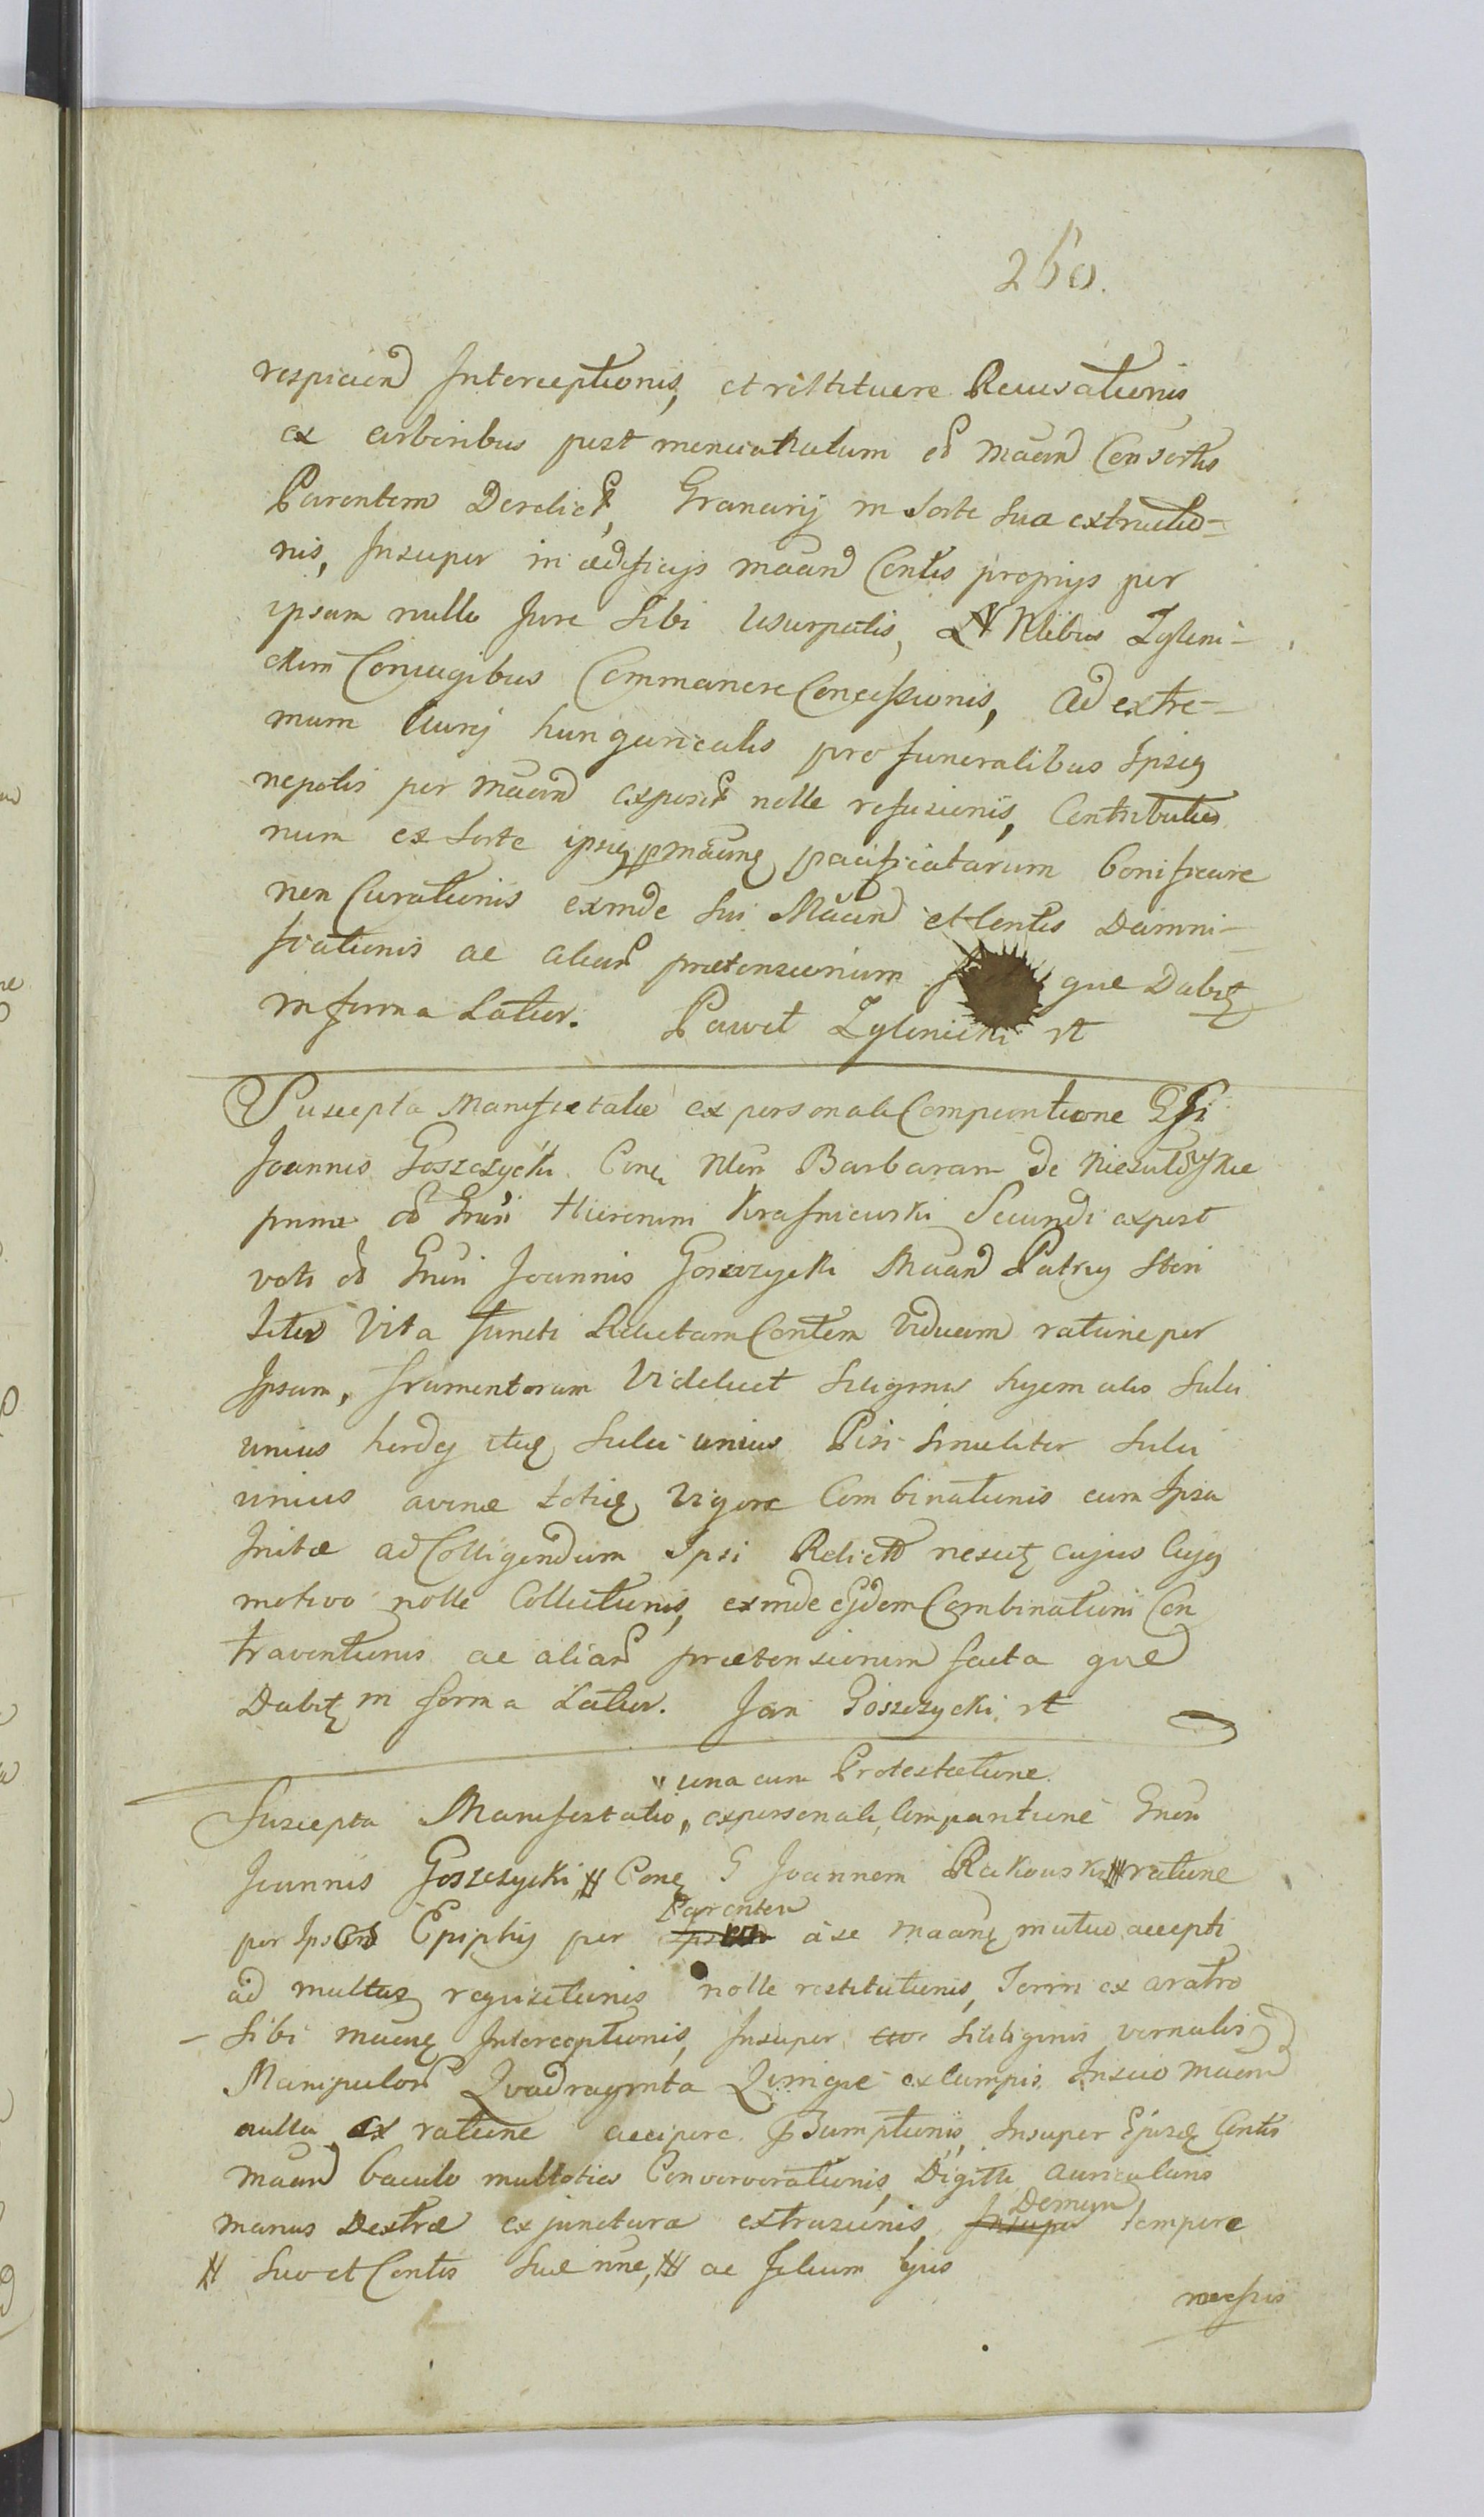 260.
respiciend Interceptionis, et restituere Recusationis
ex arboribus post memoratum ol Maand Consortis
Parentem Derelict, Granarij in Sorte sua extructio-
nis, Insuper in ædificijs maand Contis proprijs per
ipsam nullo Jure Sibi Usurpatis, Nlibus Zgleni-
ckim Conjugibus Commanere Concessionis, Ad extre-
mum Aurej hungaricalis pro funeralibus Ipsig
nepotis per Maand exposit nolle refusionis, Contributio
num ex Sorte ipsig pmaang pacificatarum bonificare
non Curationis exinde sui Maand et Contis Damni-
ficationis ac aliar prætensionum que Dabit
in forma Latior. Pawel Zglenicki rt
Suscepta Manifestatio ex personali Comparitione
Joannis Goszczycki Con Nlem Barbaram de
primi ol Gnsi Hieronimi Krasniewski Secundi expost
voti ol Gnsi Joannis Goszczycki Maand Patrig Steri
liter Vita functi Relictam Contem Viduam ratione per
Ipsam, frumentorum Videlicet Siliginis hyemalis Sulci
unius hordej itq Sulci unius Pisi Similiter Sulci
unius avenæ totiq Vigore Combinationis cum Ipsa
Initæ ad Colligendum Ipsi Relict nescit cujus Cujg
motivo nolle Collectionis, exinde ejdem Combinationi Con
traventionis ac aliar prætensionum facta que
Dabit in forma Latior. Jan Goszczycki rt
" una cum Protestatione
Suscepta Manifestatio, " ex personali Comparitione Gnsi
Joannis Goszczycki, # Con G Joannem Rakowski ratione
Parentem
per Ipsum Ephipij per a se maang mutuo accepti
ad multas requisitionis nolle restitutionis, Ferri ex aratro
Sibi maang Interceptionis, Insuper Siliginis vernalis
Manipulor Quadraginta Quinque ex Campis Inscio maand
nulla ex ratione accipere Insuper Contis
maand baculo multoties Converberationis, Digiti auricularis
Demum
manus Dextræ ex junctura extrusionis, Insuper tempore
# Suo et Contis Suæ nne, ac filium Ejus